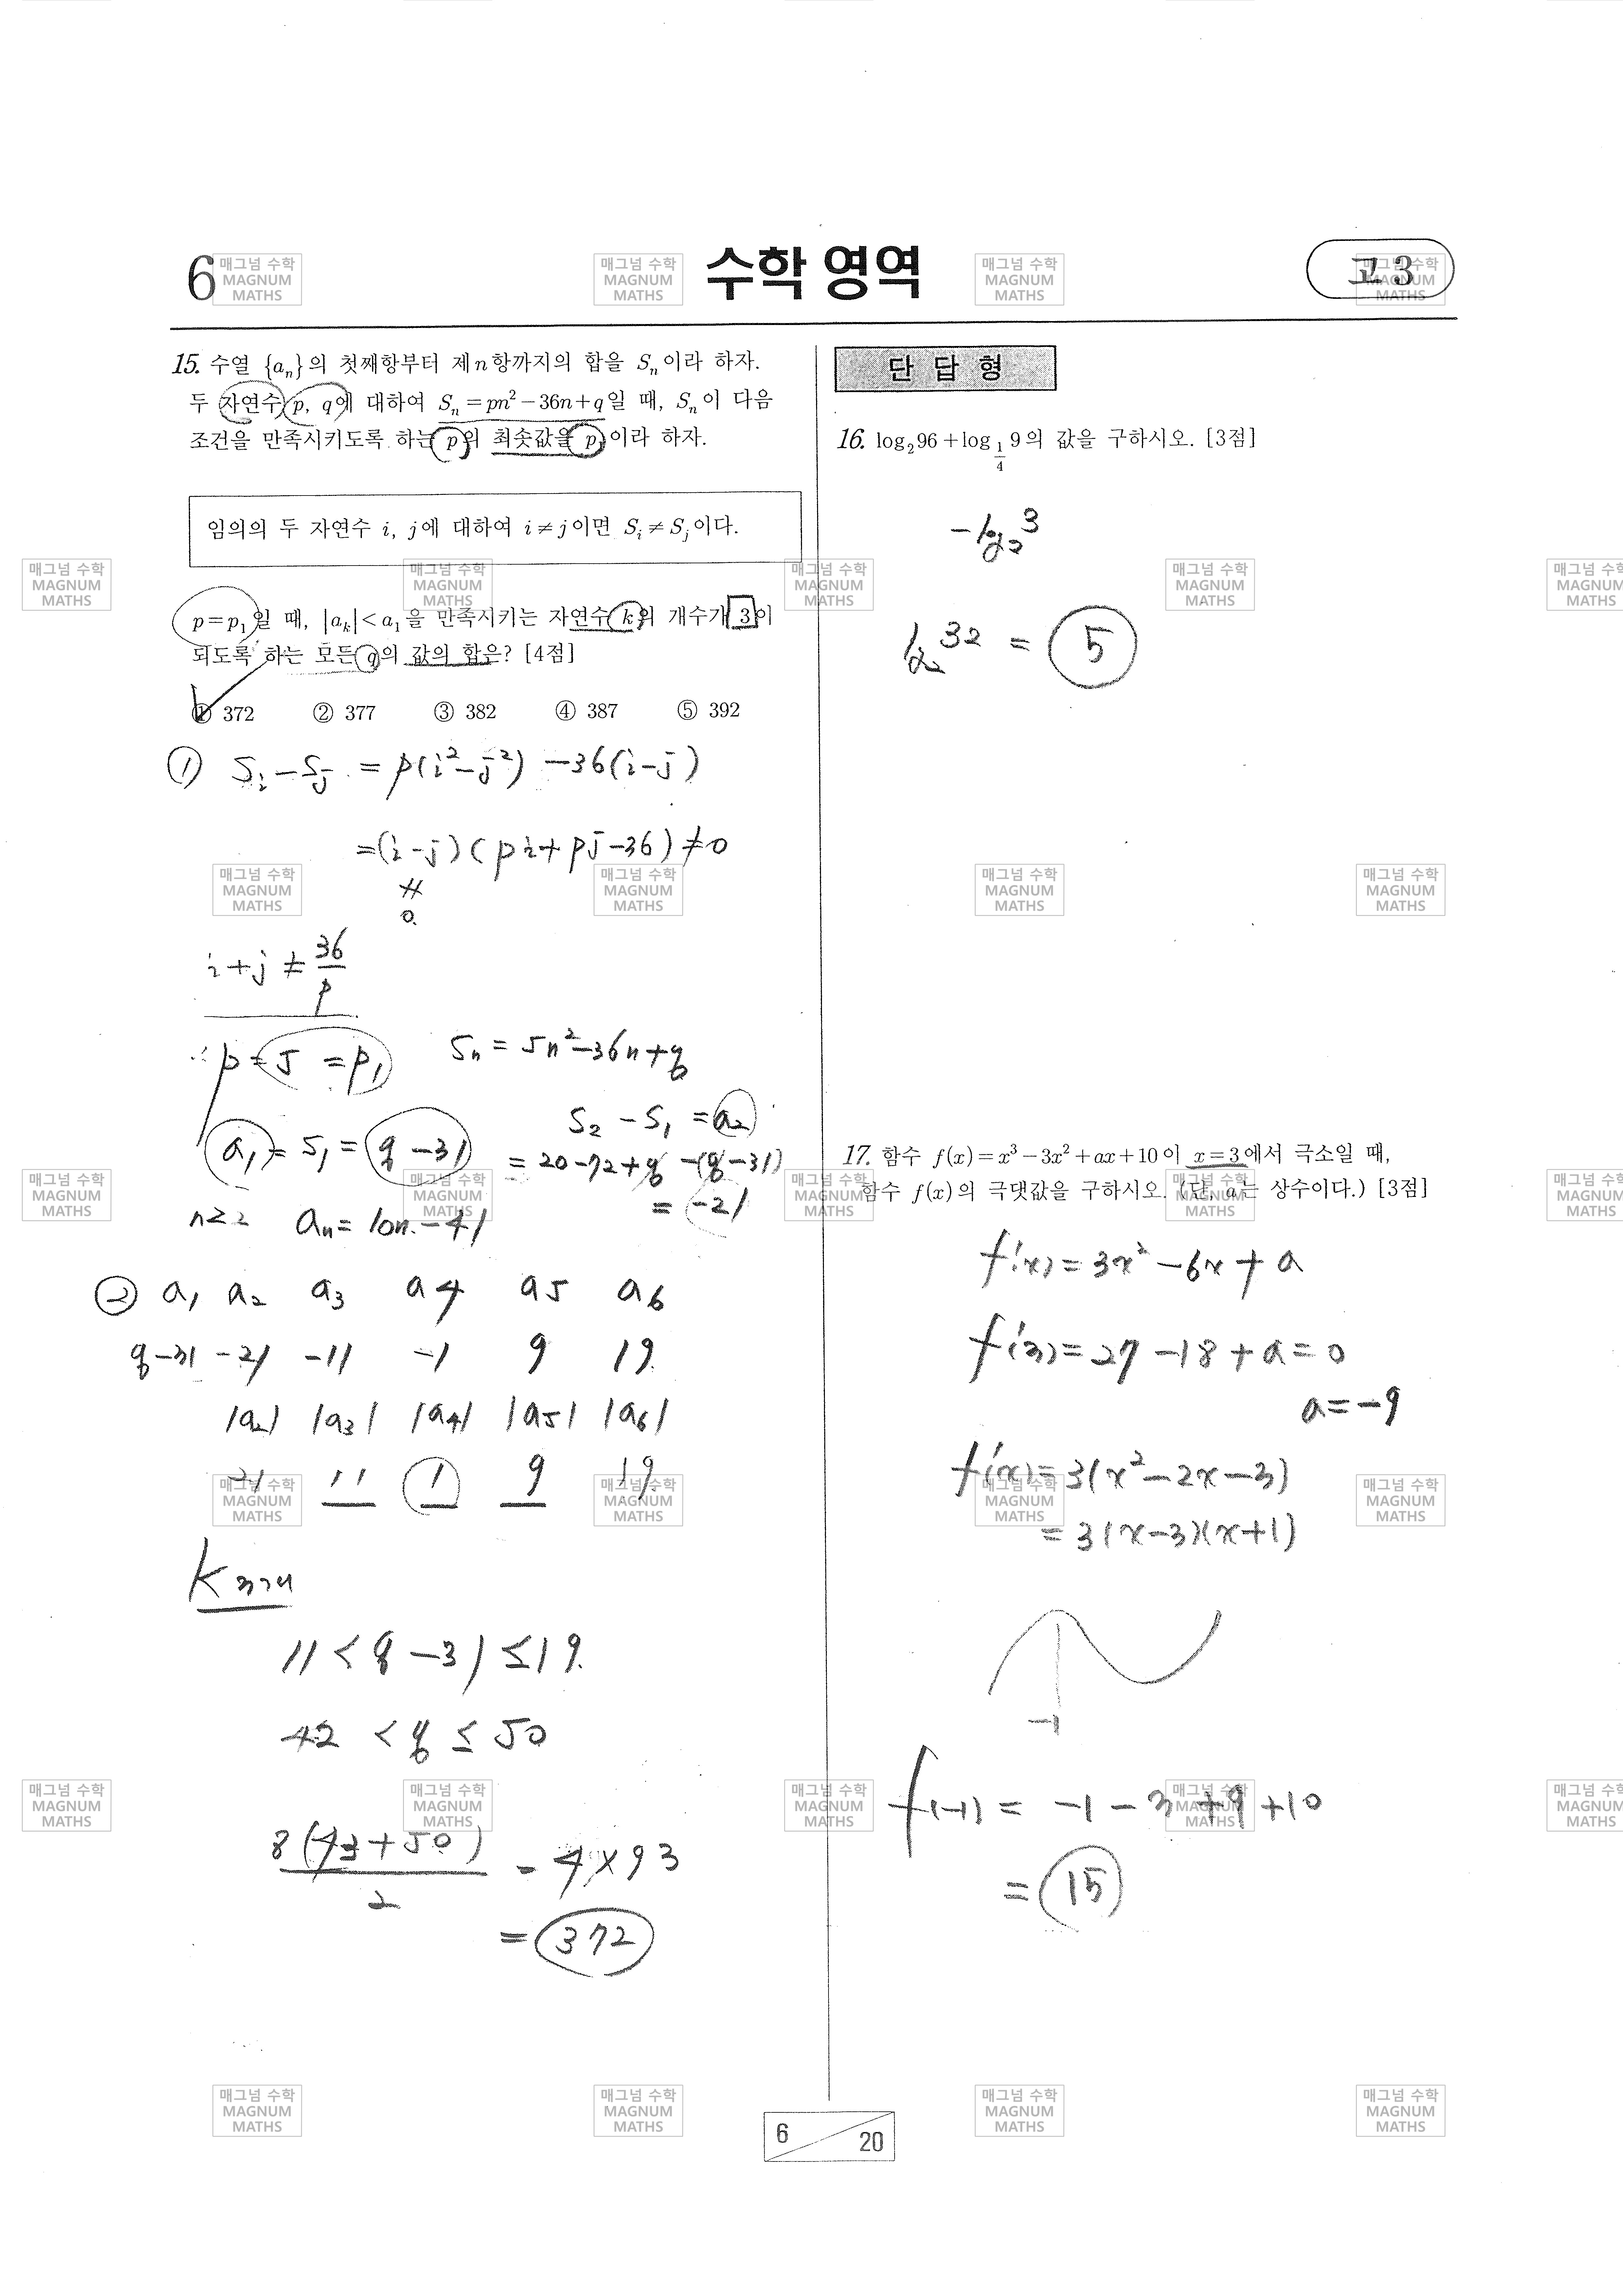 6
수학 영역
고 3
15. 수열 {aₙ}의 첫째항부터 제n항까지의 합을 Sₙ이라 하자.
두 자연수 p, q에 대하여 Sₙ = pn² − 36n + q일 때, Sₙ이 다음
조건을 만족시키도록 하는 p의 최솟값을 p₁이라 하자.
임의의 두 자연수 i, j에 대하여 i ≠ j이면 Sᵢ ≠ Sⱼ이다.
p = p₁일 때, |aₖ| < a₁을 만족시키는 자연수 k의 개수가 3이
되도록 하는 모든 q의 값의 합은? [4점]
① 372 ② 377 ③ 382 ④ 387 ⑤ 392
① Sᵢ − Sⱼ = p(i² − j²) − 36(i − j)
= (i − j)(pi + pj − 36) ≠ 0
≠
0.
i + j ≠ 36/p
∴ p = 5 = p₁
Sₙ = 5n² − 36n + q
a₁ = S₁ = q − 31
S₂ − S₁ = a₂
= 20 − 72 + q − (q − 31)
= −21
n ≥ 2 aₙ = 10n − 41
② a₁ a₂ a₃ a₄ a₅ a₆
q−31 −21 −11 −1 9 19
|a₂| |a₃| |a₄| |a₅| |a₆|
21 11 1 9 19
11 < q − 31 ≤ 19
42 < q ≤ 50
8(43 + 50)/2 = 4 × 93
= 372
단 답 형
16. log₂96 + log_{1/4} 9의 값을 구하시오. [3점]
− log₂ 3
log₂ 32 = 5
17. 함수 f(x) = x³ − 3x² + ax + 10이 x = 3에서 극소일 때,
함수 f(x)의 극댓값을 구하시오. (단, a는 상수이다.) [3점]
f'(x) = 3x² − 6x + a
f'(3) = 27 − 18 + a = 0
a = −9
f'(x) = 3(x² − 2x − 3)
= 3(x − 3)(x + 1)
−1
f(−1) = −1 − 3 + 9 + 10
= 15
6 / 20
매그넘 수학
MAGNUM
MATHS